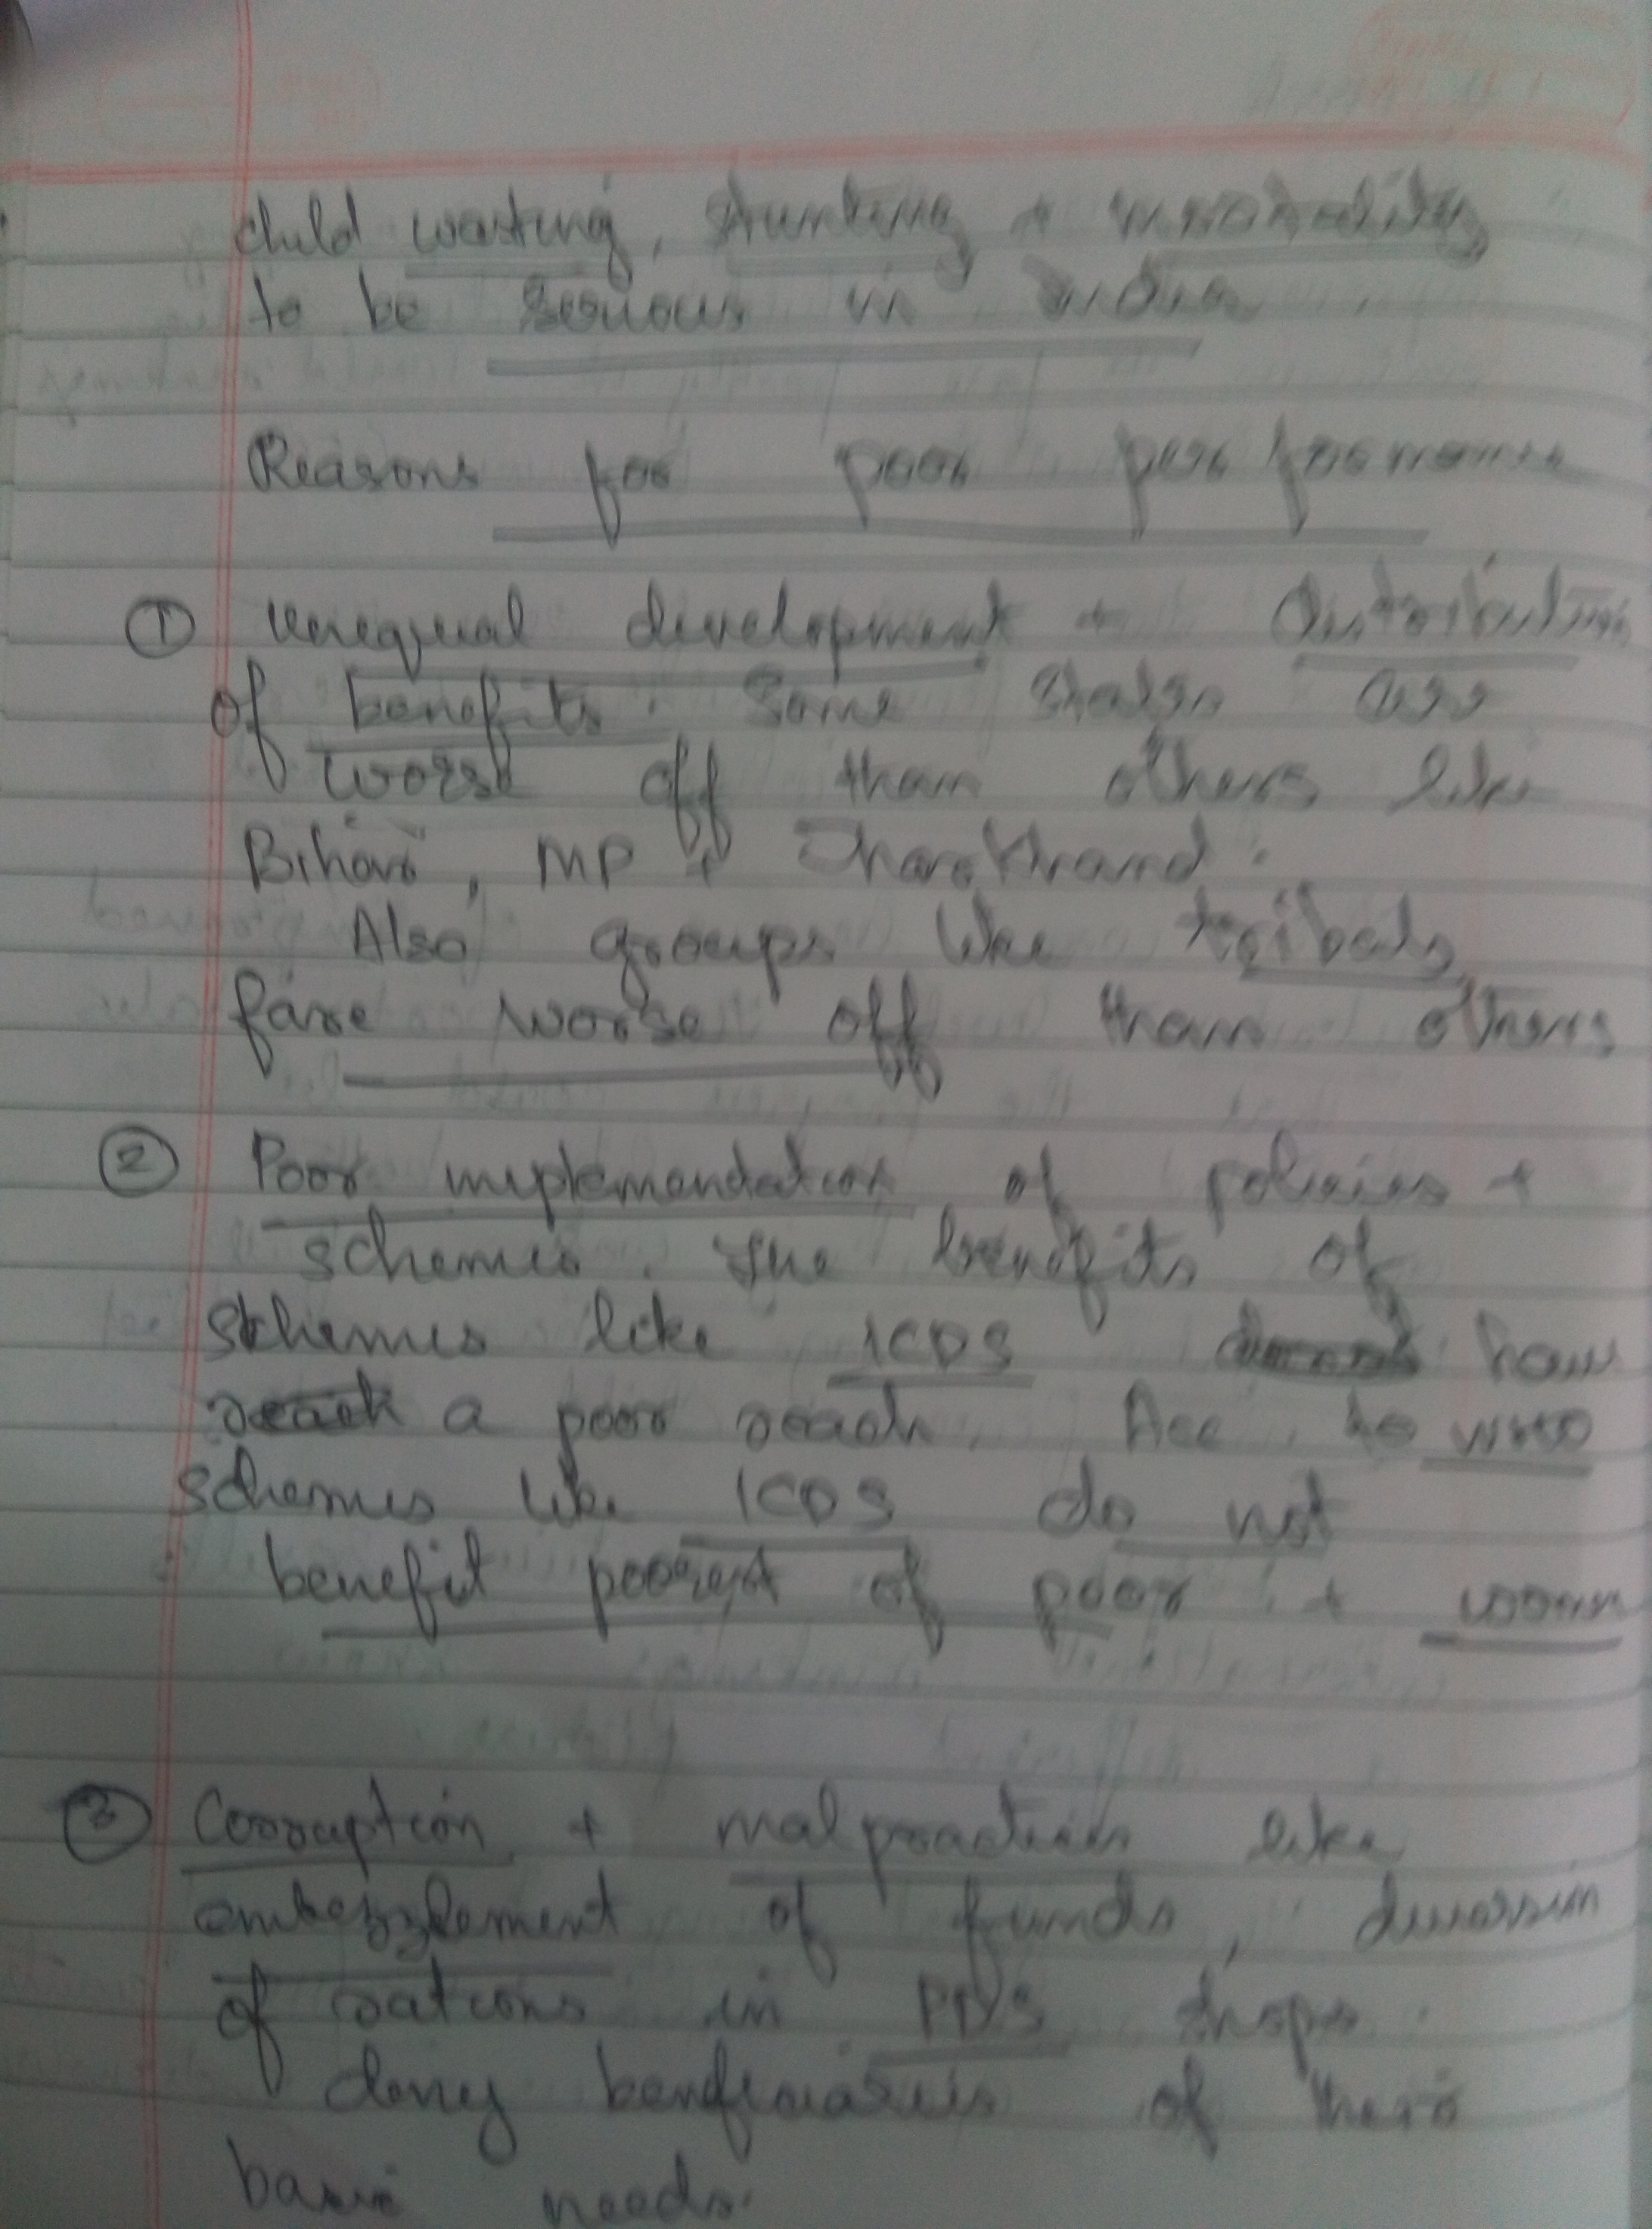 child wasting, stunting + mortality
to be serious in India.
Reasons for poor performance
① Unequal development + distribution
of benefits. Some states are
worse off than others like
Bihar, MP + Jharkhand.
Also groups like tribals
fare worse off than others
② Poor implementation of policies +
schemes. The benefits of
schemes like ICDS have
reach a poor reach. Acc. to WHO
schemes like ICDS do not
benefit poorest of poor +
③ Corruption + malpractices like
embezzlement of funds, diversion
of rations in PDS shops
deny beneficiaries of their
basic needs.